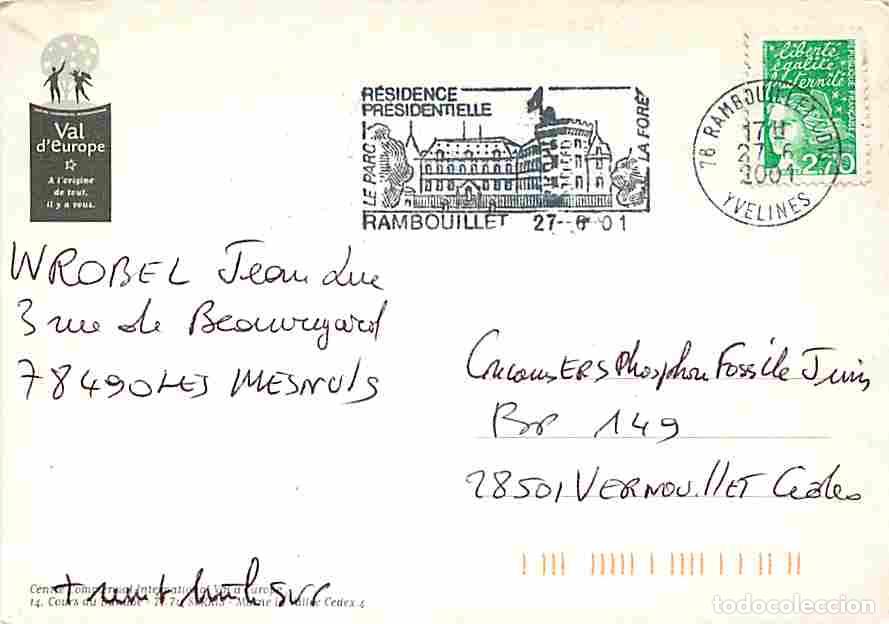 Val
d'Europe
A l'origine
de tout,
il y a vous.
RÉSIDENCE
PRÉSIDENTIELLE
LE PARC
LA FORÊT
RAMBOUILLET 27-6 01
liberté
égalité
fraternité
RÉPUBLIQUE FRANÇAISE
2,70
78 RAMBOUILLET
17H
27-6
2001
YVELINES
WROBEL Jean Luc
3 rue de Beauregard
78490 LES MESNULS
Concours ERS Phosphore Fossile Juin
BP 149
28501 VERNOUILLET Cedex
Centre Commercial International Val d'Europe
14, Cours du Danube - Marne la Vallée Cedex 4
todocoleccion